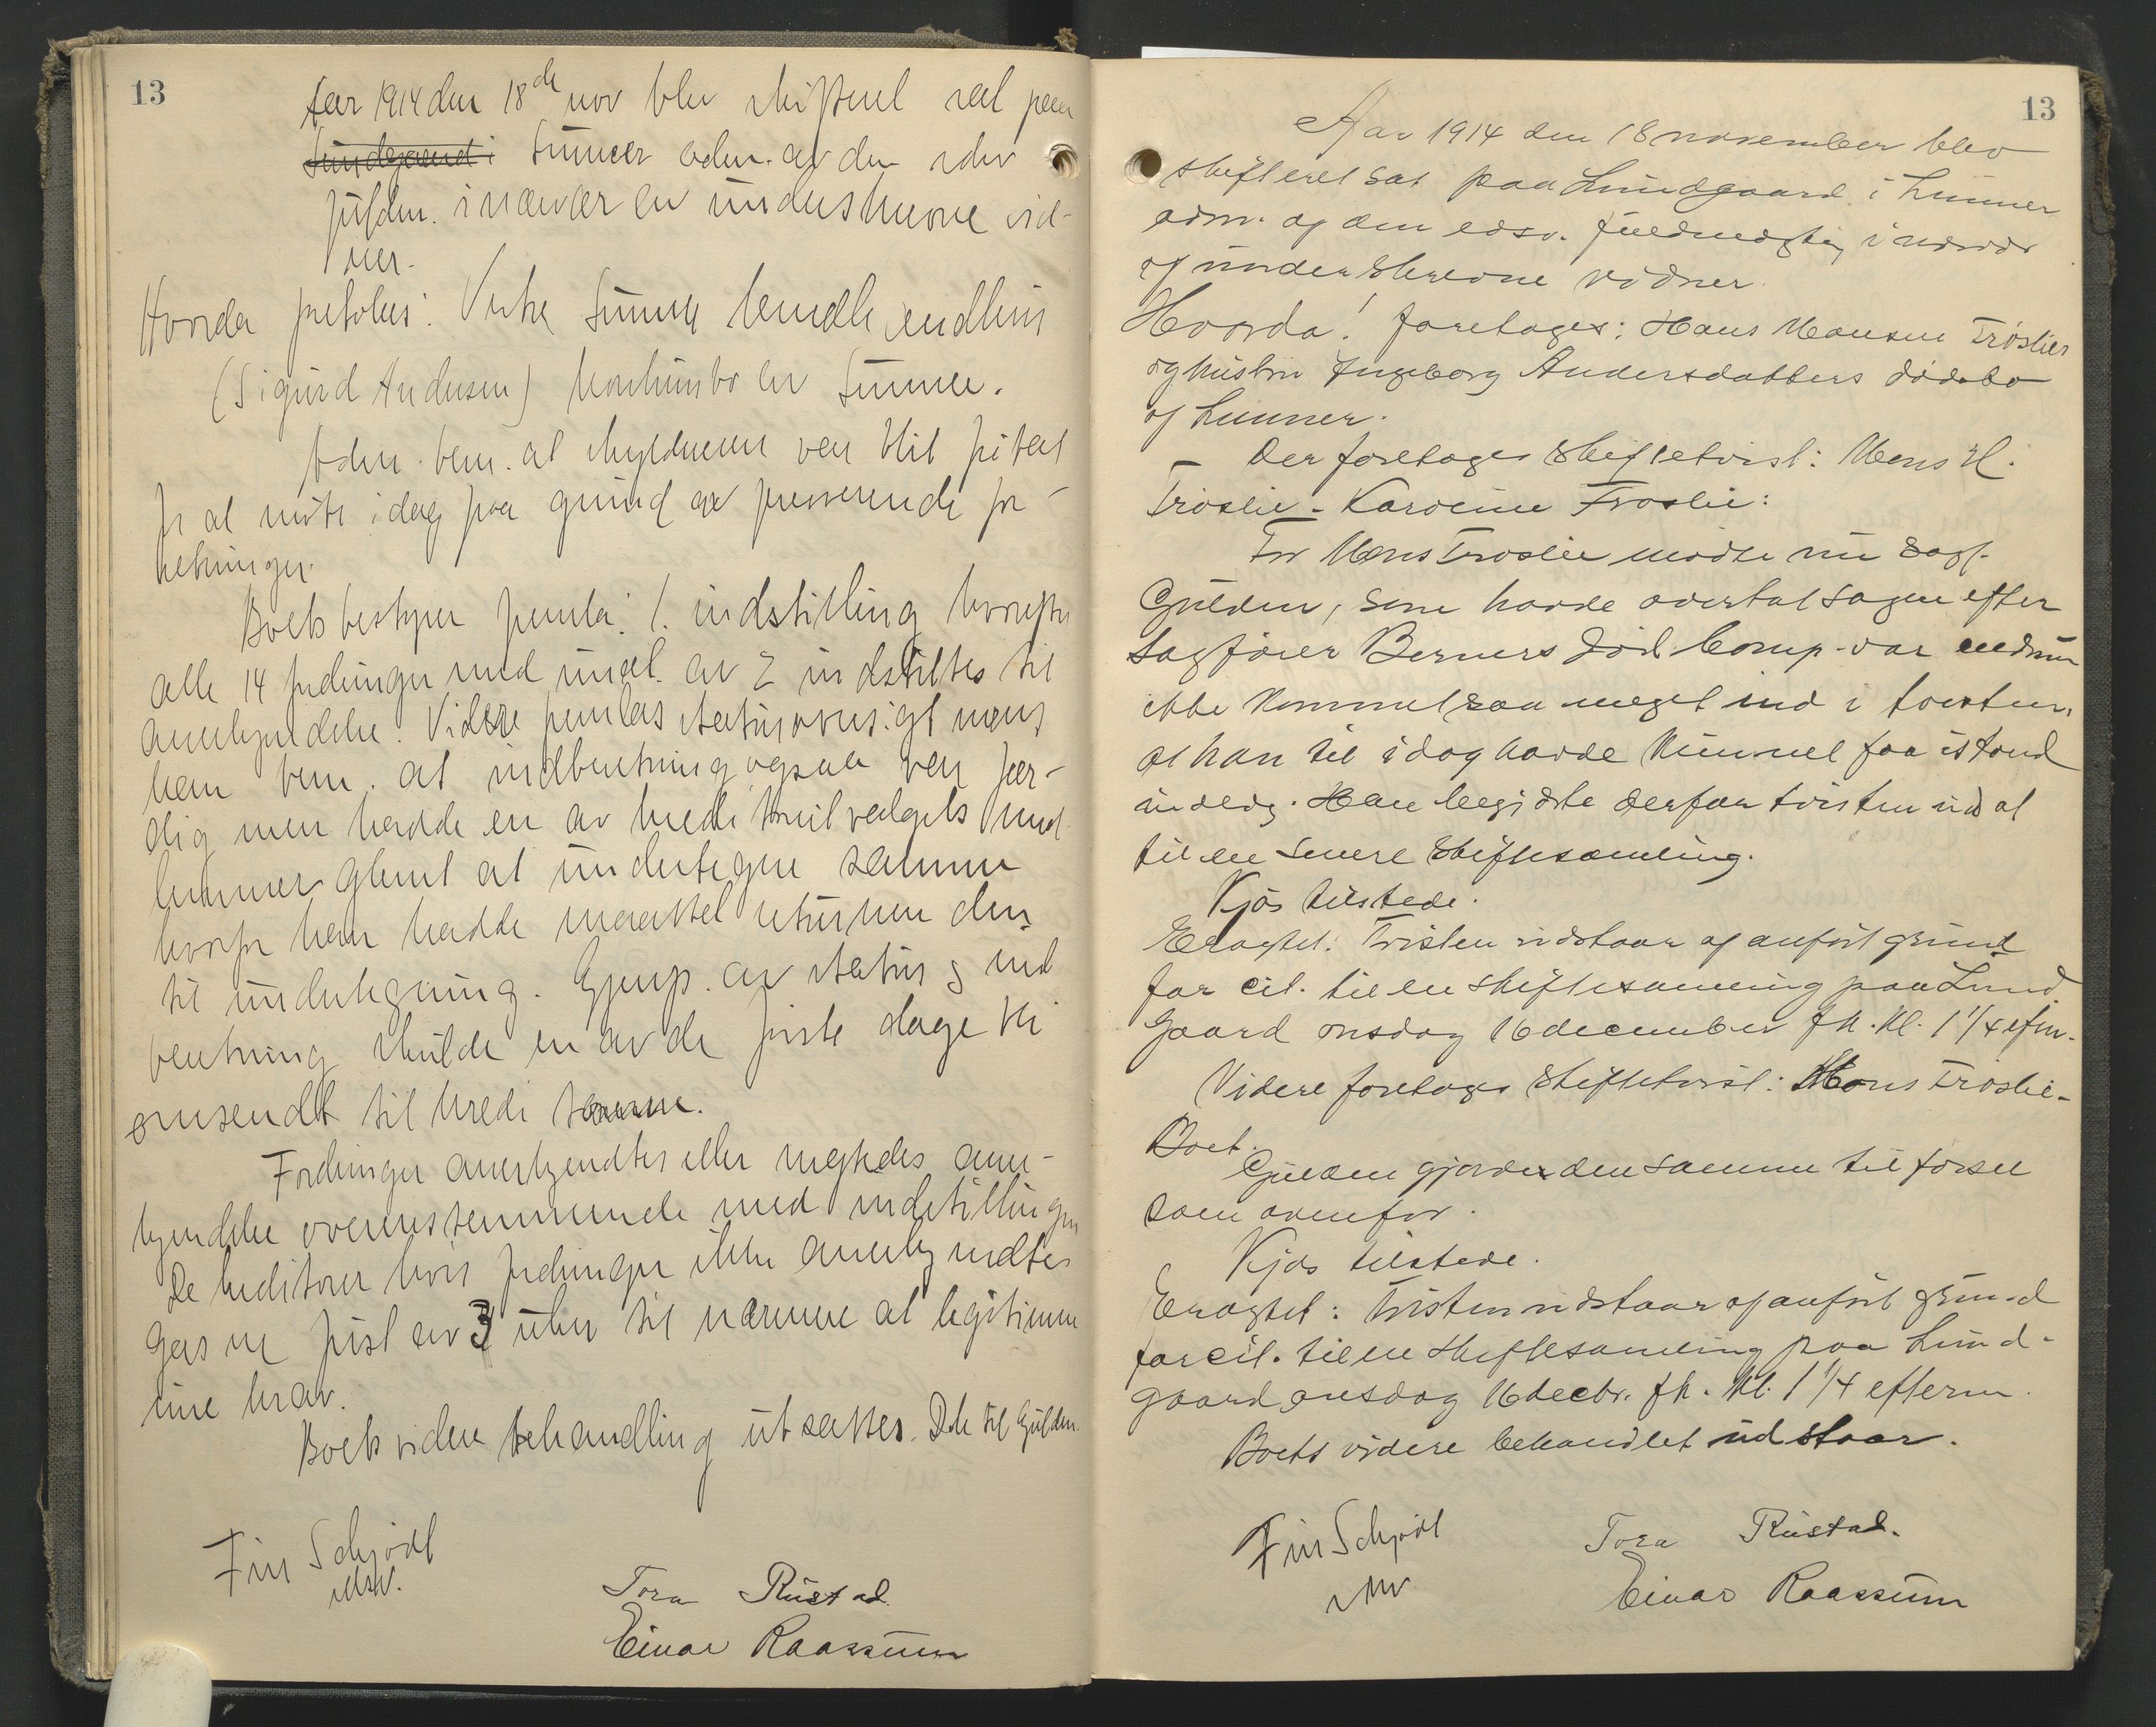 13
Aar 1914 den 18de nov blev skifteret sat paa
Lundgaard i Lunner adm. av den edsv
fuldm. i nærvær av underskrevne vid-
ner.
Hvorda foretokes: Vestre Lunner handle
(Sigurd Andersen) konkursbo av Lunner.
Adm. bem. at skyldneren var blit fritat
for at møte idag paa grund av presserende for-
retninger.
Boets bestyrer fremla: 1. indstilling hvorefter
alle 14 fordringer med undt. av 2 indstilltes til
anerkjendelse. Videre fremlas statusoversigt mens
han bem. at indberetning ogsaa var fær-
dig men hadde en av kreditorutvalgets med-
lemmer glemt at undertegne samme
hvorfor han hadde maattet returnere den
til undertegning. Gjenp. av status og ind
beretning skulde en av de første dage bli
omsendt til kreditorerne.
Fordringer anerkjendtes eller negtedes aner-
kjendelse overensstemmende med indstillingen
De kreditorer hvis fordringer ikke anerkjendtes
gas en frist av 3 uker til nærmere at legitimere
sine krav.
Boets videre behandling utsattes. Dok til Gulden.
Fin Schjødt
edsv.
Tora Rustad
Einar Raassum
13
Aar 1914 den 18 november blev
skifteret sat paa Lundgaard i Lunner
adm. af den edsv. fuldmægtig i nærvær
af underskrevne vidner.
Hvorda! foretages: Hans Monsen Trøslien
og hustru Ingeborg Andersdatters dødsbo
af Lunner.
Der foretages skiftetvist: Mons H.
Trøslie - Karoline Frøslie:
For Mons Trøslie mødte nu sagf.
Gulden, som havde overtat sagen efter
Sagfører Berners død. Comp. var endnu
ikke kommet saa meget ind i tvisten,
at han til idag havde kunnet faa istand
indlæg. Han begjærte derfor tvisten udsat
til en senere skiftesamling.
Kjøs tilstede.
Eragtet: Tvisten udstaar af anført grund
for cit. til en skiftesamling paa Lund
gaard onsdag 16 december fk. kl. 1 1/4 efm.
Videre foretages skiftetvist: Mons Trøslie -
Boet.
Gulden gjorde den samme tilførsel
som ovenfor.
Kjøs tilstede.
Eragtet: Tvisten udstaar af anført grund
for cit. til en skiftesamling paa Lund-
gaard onsdag 16 decbr. fk. kl. 1 1/4 efterm.
Boets videre behandlet udstaar.
Fin Schjødt
edsv
Tora Rustad.
Einar Raassum